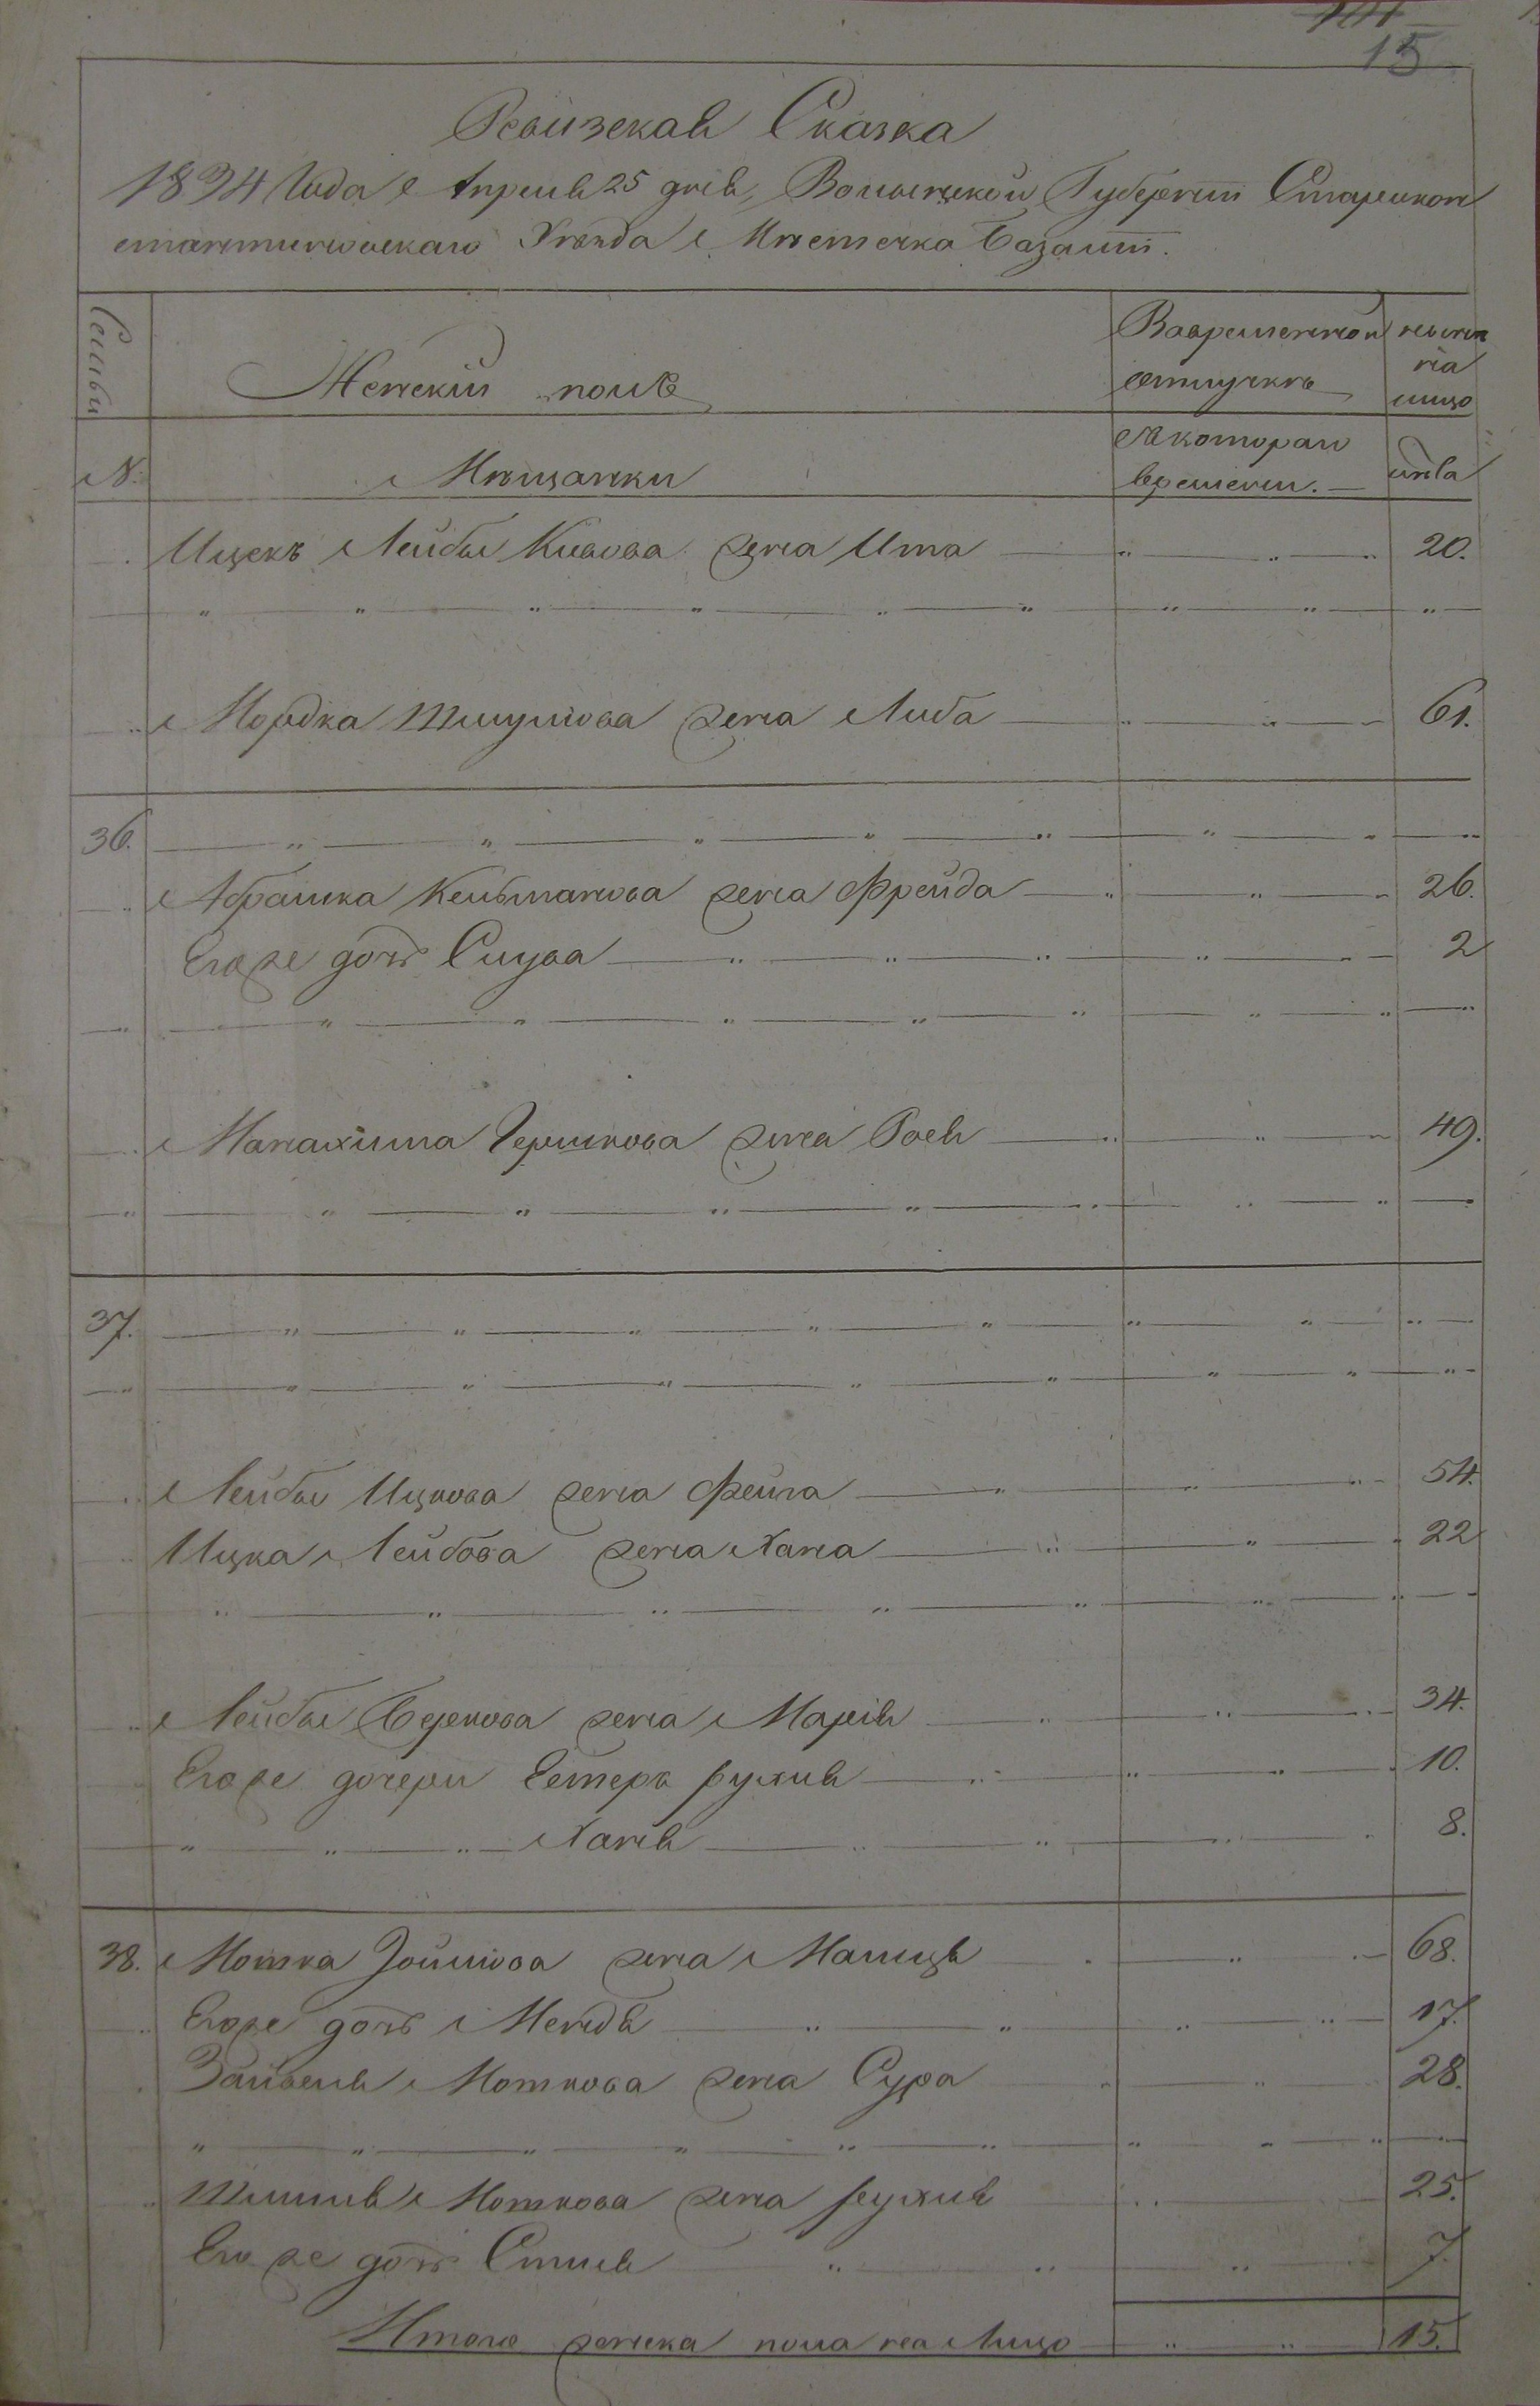 15
Ревизская Сказка
1834 Года Апреля 25 дня, Волынской Губернии Старокон
стантиновскаго Уезда Местечка Базалии.
Семьи
Женский полъ
Вовременной
отлучкѣ
ныне
на
лицо
N.
Мѣщанки
Съ котораго
времени.
лѣта
Ицекъ Лейбы Кивова жена Ита " " " 20.
" " " " " " " " "
" Мордка Шмулиова жена Либа " " " 61.
36. " " " " " " " "
" Абрашка Кельманова жена Фрейда " " " 26.
Егоже дочь Слува " " " " " 2
" " " " " " " " "
" Манахима Гершкова жена Рася " " " 49.
" " " " " " " "
37. " " " " " " " "
" " " " " " " " "
" Лейбы Ицкова жена Фейга " " " 54.
" Ицка Лейбова жена Хана " " " 22
" " " " " " "
" Лейбы Беркова жена Марія " " " 34.
Егоже дочери Естеръ Рухля " " " " 10.
" " " Ханя " " " " 8.
38. Мотка Іойниова жена Малця " " " 68.
" Егоже дочь Мендя " " " " 17.
" Зайвеля Моткова жена Сура " " 28.
" " " " " " " " "
" Шмиля Моткова жена Рухля " " 25.
Егоже дочь Стиля " " " 7.
Итого женска пола на Лицо " " 15.